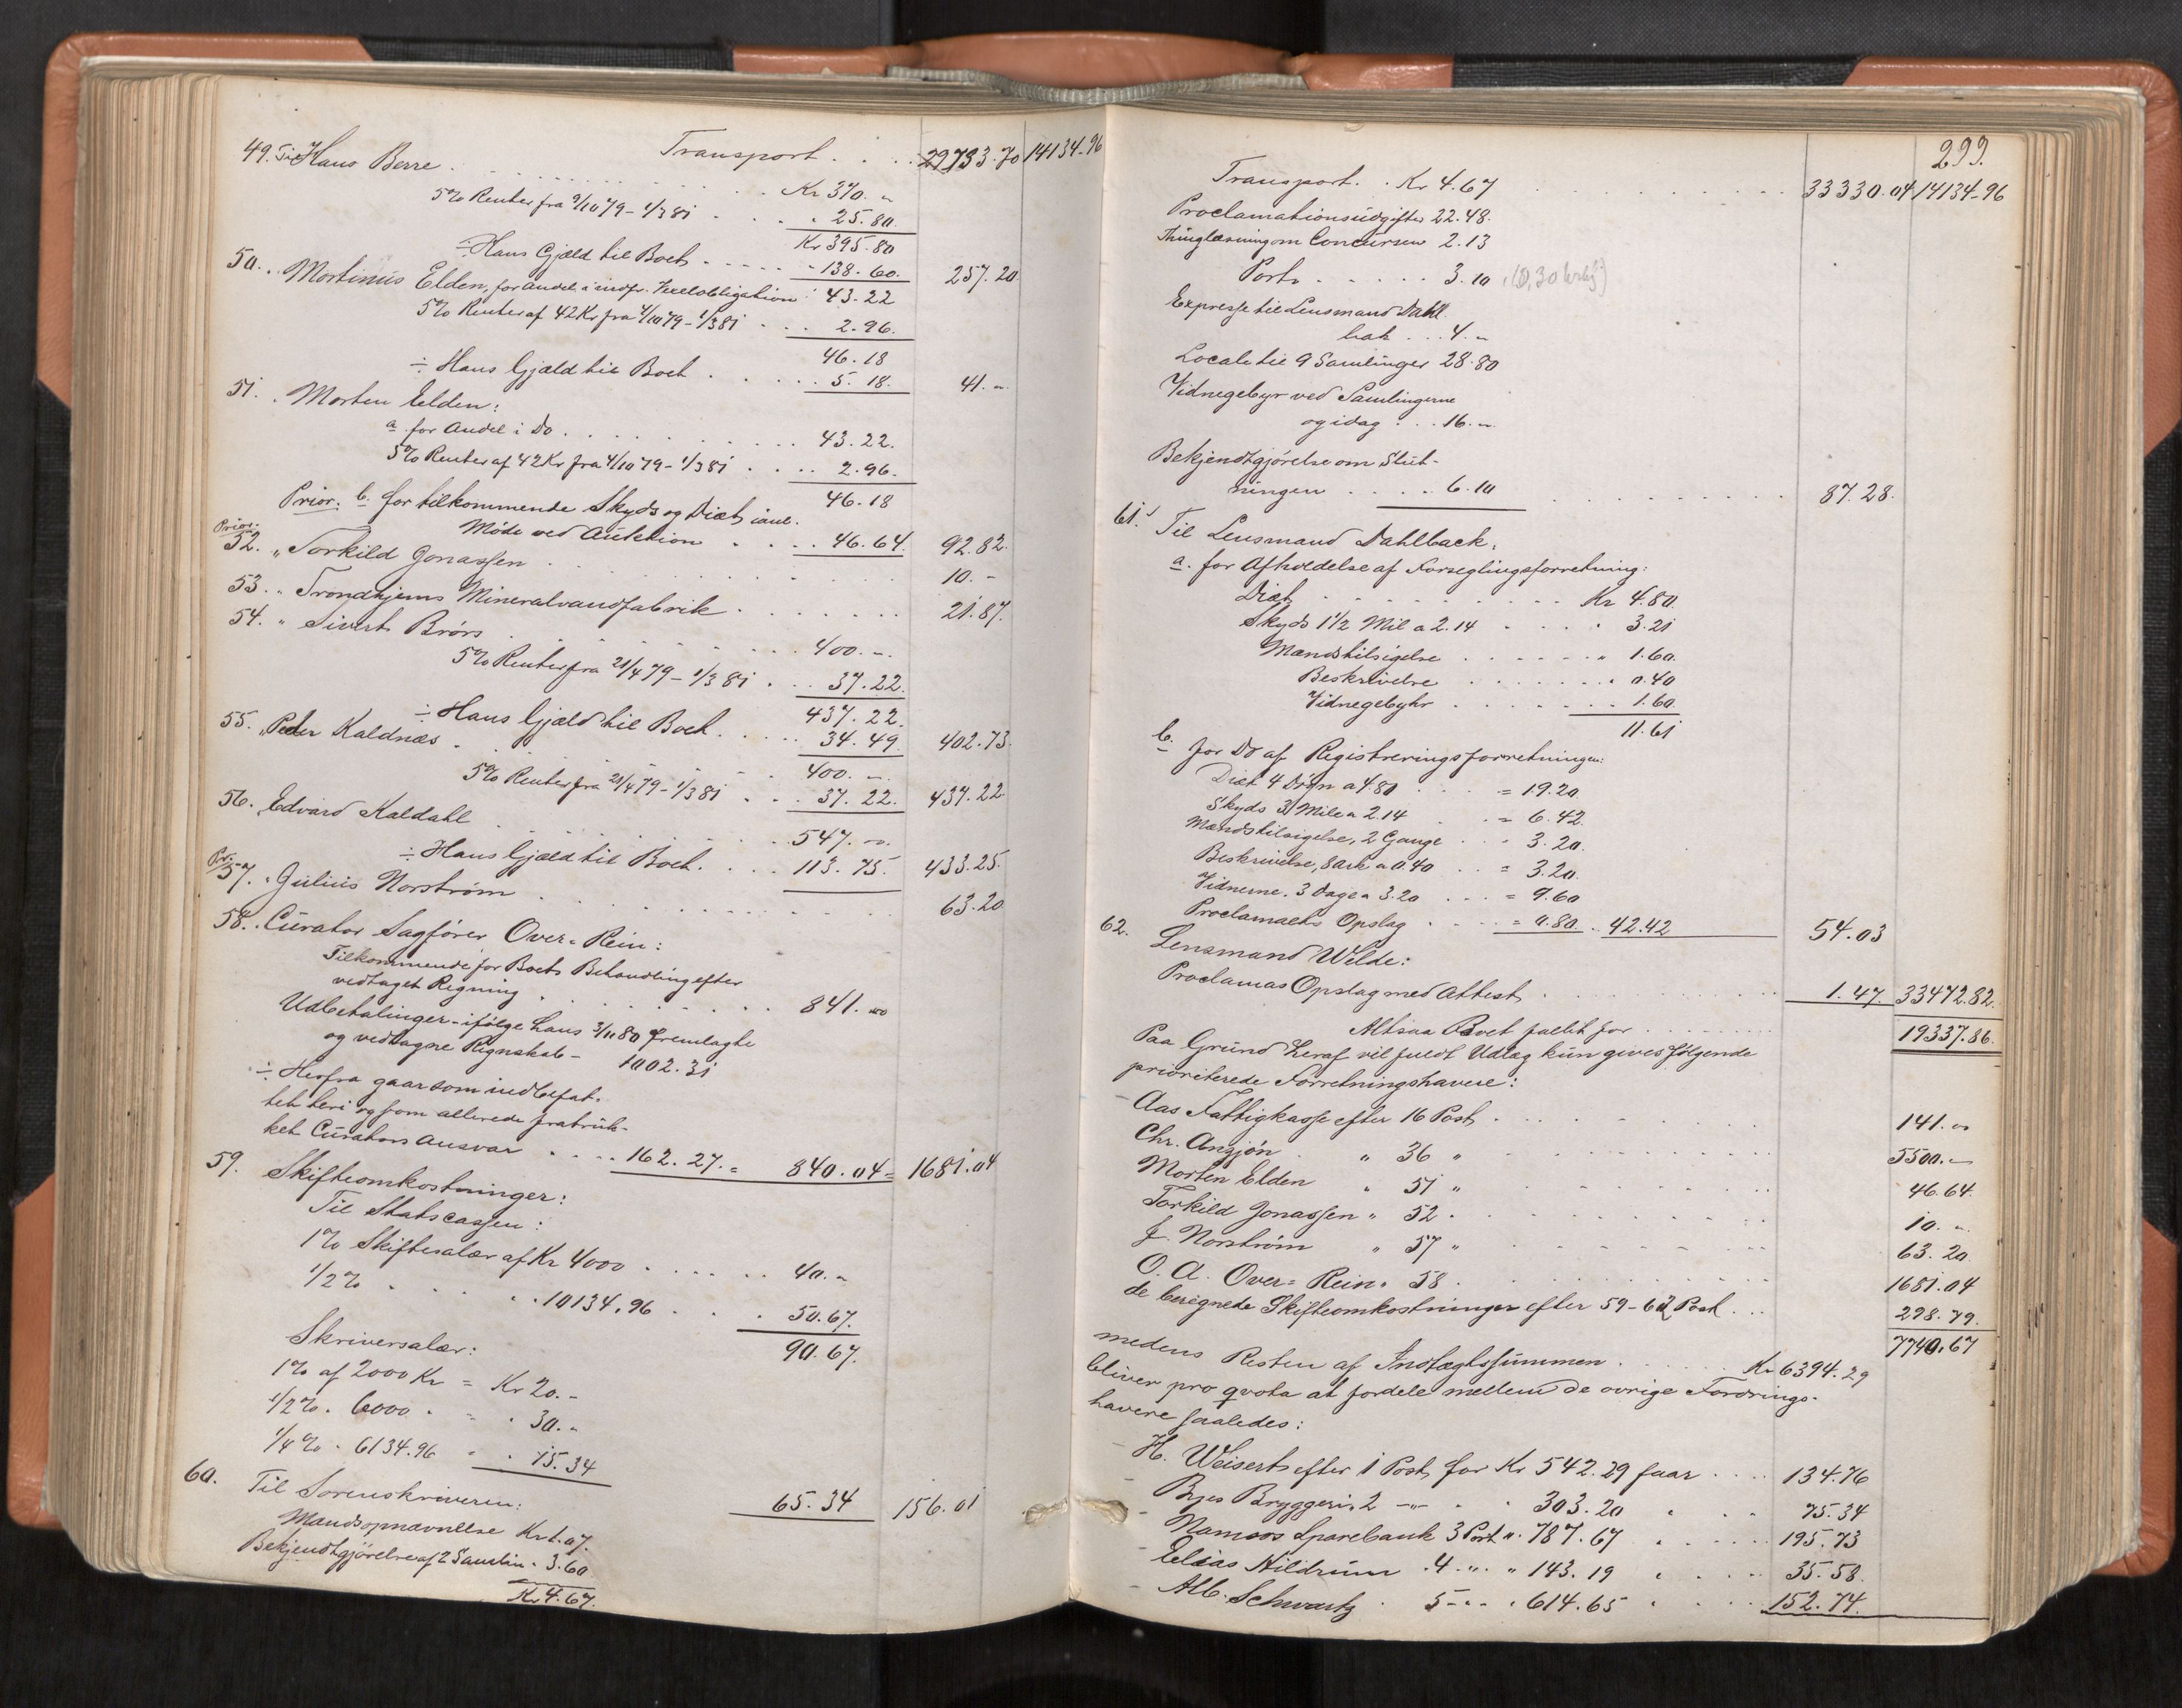 Transport . . . 29733.70 14134.96
49. Til Hans Berre . . . Kr 370. "
5% Renter fra 9/10 79 - 1/3 81 . . . 25.80
Kr 395.80
÷ Hans Gjæld til Boet . . . 138.60. 257.20
50. " Mortinus Elden, for Andel i indfr. Vexelobligation 43.22
5% Renter af 42 Kr fra 4/10 79 - 1/3 81 . . . 2.96.
46.18
÷ Hans Gjæld til Boet . . . 5.18. 41. "
51. " Morten Elden:
a. for Andel i Do . . . 43.22.
5% Renter af 42 Kr fra 4/10 79 - 1/3 81 . . . 2.96.
46.18
Prior: b. for tilkommende Skyds og Diæt
Møde ved Auktion . . . 46.64. 92.82.
Prior:
52. " Torkild Jonassen . . . 10. -
53. " Trondhjems Mineralvandfabrik . . . 21.87.
54. " Sivert Brørs . . . 400. -
5% Renter fra 21/4 79 - 1/3 81 . . . 37.22.
437.22.
÷ Hans Gjæld til Boet . . . 34.49. 402.73.
55. " Peder Kaldnæs . . . 400. -
5% Renter fra 21/4 79 - 1/3 81 . . . 37.22. 437.22
56. " Edvard Kaldahl . . . 547. -
÷ Hans Gjæld til Boet . . . 113.75. 433.25.
Pr:
57. " Julius Norstrøm . . . 63.20
58. " Curator Sagfører Over-Rein:
Tilkommende for Boets Behandling efter
vedtaget Regning . . . 841. 00
Udbetalinger - ifølge hans 3/11 80 fremlagte
og vedtagne Regnskab - 1002.31
÷ Herfra gaar som indbefat-
tet heri og som allerede fratruk-
ket Curators Ansvar . . . 162.27. = 840.04 = 1681.04
59. Skifteomkostninger:
Til Statscassen:
1% Skiftesalær af Kr 4000 . . . 40. "
1/2% " " 10134.96 . . . 50.67.
90.67.
Skriversalær:
1% af 2000 Kr = Kr 20. -
1/2% " 6000 " = " 30. "
1/4% " 6134.96 " " 15.34
65.34 156.01
60. Til Sorenskriveren:
Mandsopnævnelse Kr 1.07.
Bekjendtgjørelse af 2 Samlin. 3.60
Kr 4.67.
299.
Transport. . Kr 4.67 . . . 33330.04 14134.96
Proclamationsudgifter 22.48.
Thinglæsning om Concursen 2.13
Porto . . . 3.10
Expresse til Lensmand Dahl
bak . . . 4. "
Locale til 9 Samlinger 28.80
Vidnegebyr ved Samlingerne
og idag . . . 16. "
Bekjendtgjørelse om Slut-
ningen . . . 6.10 . . . 87.28.
61. Til Lensmand Dahlback,
a. for Afholdelse af Forseglingsforretning:
Diæt . . . Kr 4.80.
Skyds 1 1/2 Mil a 2.14 . . . " 3.21
Mandstilsigelse . . . " 1.60.
Beskrivelse . . . " 0.40
Vidnegebyhr . . . 1.60.
11.61
b. for Do af Registreringsforretningen:
Diæt 4 Døgn a 4.80 . . . = 19.20.
Skyds 3 Mile a 2.14 . . . = 6.42.
Mandstilsigelse, 2 Gange . . . " 3.20.
Beskrivelse, 8 Ark a 0.40 . . . = 3.20.
Vidnerne, 3 Dage a 3.20 . . . = 9.60
Proclamaets Opslag . . . = 0.80. . 42.42 54.03
62. Lensmand Welde:
Proclamas Opslag med Attest . . . 1.47. 33472.82.
Altsaa Boet fallit for . . . 19337.86.
Paa Grund heraf vil fuldt Udlæg kun gives følgende
prioriterede Forretningshavere:
- Aas Fattigkasse efter 16 Post . . . 141. 00
Chr. Anzjøn " 36 " . . . 5500. -
Morten Elden " 51 " . . . 46.64.
Torkild Jonassen " 52 . . . 10. -
J. Norstrøm " 57 " . . . 63.20
O. A. Over-Rein " 58 . . . 1681.04
de beregnede Skifteomkostninger efter 59-62 Post . . . 298.79.
7740.67
medens Resten af Indtægtssummen . . . Kr 6394.29
bliver pro qvota at fordele mellem de øvrige Fordrings-
havere saaledes:
- H. Weisert efter 1 Post, for Kr 542.29 faar . . . 134.76
- Bryggeri " 2 -"- " 303.20 " . . . 75.34
- Namsos Sparebank 3 Post " 787.67 " . . . 195.73
- Elias Hildrum " 4 " " 143.19 " . . . 35.58.
- Alb. Schwartz " 5 - " " 614.65 " . . . 152.74.